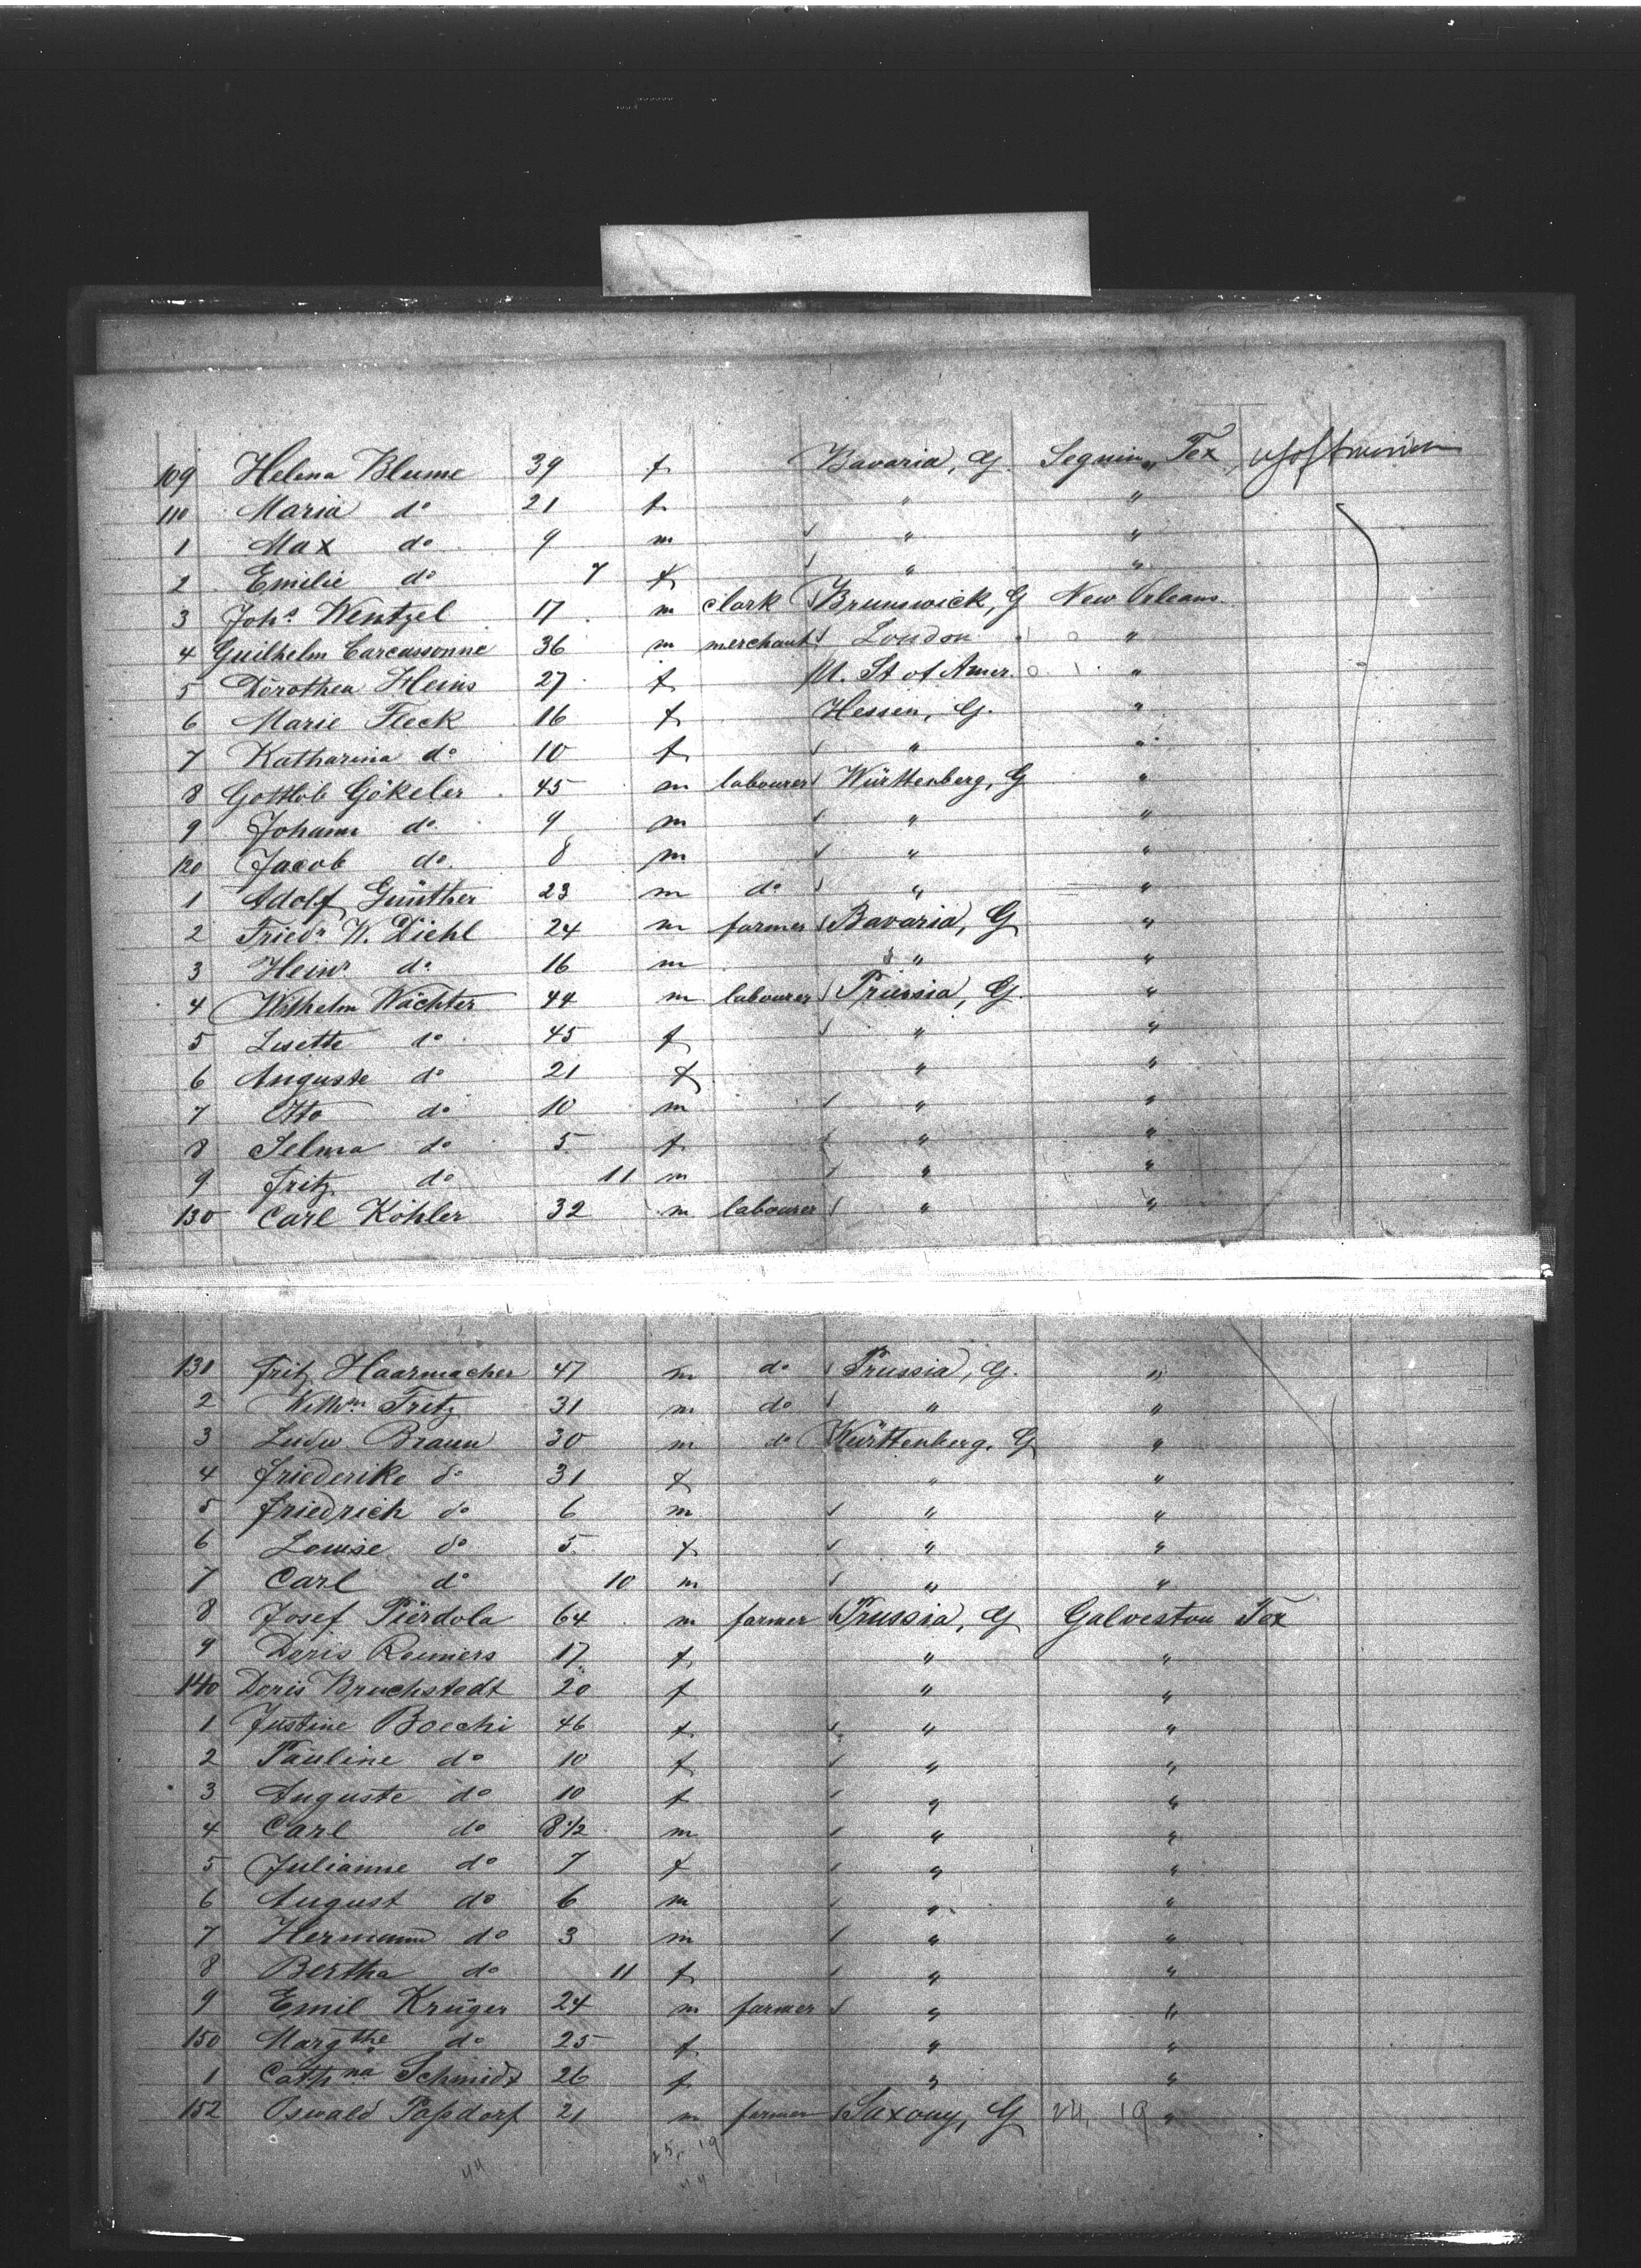 109 Helena Blume 39 f Bavaria, G. Seguin, Tex
110 Maria do 21 f " "
1 Max do 9 m " "
2 Emilie do 7 f " "
3 Johs Wentzel 17 m clark Brunswick, G New Orleans
4 Guilhelm Carcassonne 36 m merchant London "
5 Dorothea Heins 27 f U. St of Amer. "
6 Marie Fleck 16 f Hessen, G. "
7 Katharina do 10 f " "
8 Gottlob Gökeler 45 m labourer Württenberg, G "
9 Johann do 9 m " "
120 Jacob do 8 m " "
1 Adolf Günther 23 m do " "
2 Friedr W. Diehl 24 m farmer Bavaria, G "
3 Heinr do 16 m " "
4 Wilhelm Wächter 44 m labourer Prussia, G. "
5 Lisette do 45 f " "
6 Auguste do 21 f " "
7 Otto do 10 m " "
8 Selma do 5 f " "
9 Fritz do 11 m " "
130 Carl Köhler 32 m labourer " "
131 Fritz Haarmacher 47 m do Prussia, G. "
2 Willm Fritz 31 m do " "
3 Ludw. Braun 30 m do Württenberg, G "
4 Friederike do 31 f " "
5 Friedrich do 6 m " "
6 Louise do 5 f " "
7 Carl do 10 m " "
8 Josef Pierdola 64 m farmer Prussia, G Galveston Tex
9 Doris Reimers 17 f " "
140 Doris Bruchstedt 20 f " "
1 Justine Boechi 46 f " "
2 Pauline do 10 f " "
3 Auguste do 10 f " "
4 Carl do 8 1/2 m " "
5 Julianne do 7 f " "
6 August do 6 m " "
7 Hermann do 3 m " "
8 Bertha do 11 f " "
9 Emil Krüger 24 m farmer " "
150 Margthe do 25 f " "
1 Cathna Schmidt 26 f " "
152 Oswald Paßdorf 21 m farmer Saxony, G 24, 19 "
44 25, 19
44